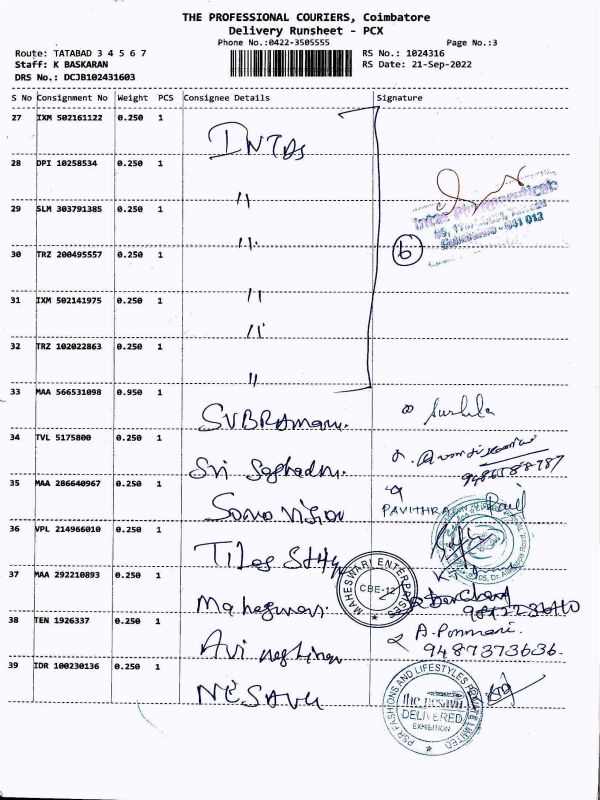 THE PROFESSIONAL COURIERS, Coimbatore
Delivery Runsheet - PCX
Phone No.:0422-3505555
Page No.:3
Route: TATABAD 3 4 5 6 7
RS No.: 1024316
Staff: K BASKARAN
RS Date: 21-Sep-2022
DRS No.: DCJB102431603
S No Consignment No Weight PCS Consignee Details Signature
27 IXM 502161122 0.250 1
28 DPI 10258534 0.250 1 "
29 SLM 303791385 0.250 1 "
Intas Pharmaceuticals
30 TRZ 200495557 0.250 1 " 6
31 IXM 502141975 0.250 1 "
32 TRZ 102022863 0.250 1 "
33 MAA 566531098 0.950 1
34 TVL 5175800 0.250 1
35 MAA 286640967 0.250 1
PAVITHRA
36 VPL 214966010 0.250 1
37 MAA 292210893 0.250 1
MAHESWARI ENTERPRISES
CBE-12
38 TEN 1926337 0.250 1
A. Ponmani.
9487373636.
39 IDR 100230136 0.250 1 NESAVU
PSR FASHIONS AND LIFESTYLES PRIVATE LIMITED
the nesavu
DELIVERED
EXHIBITION